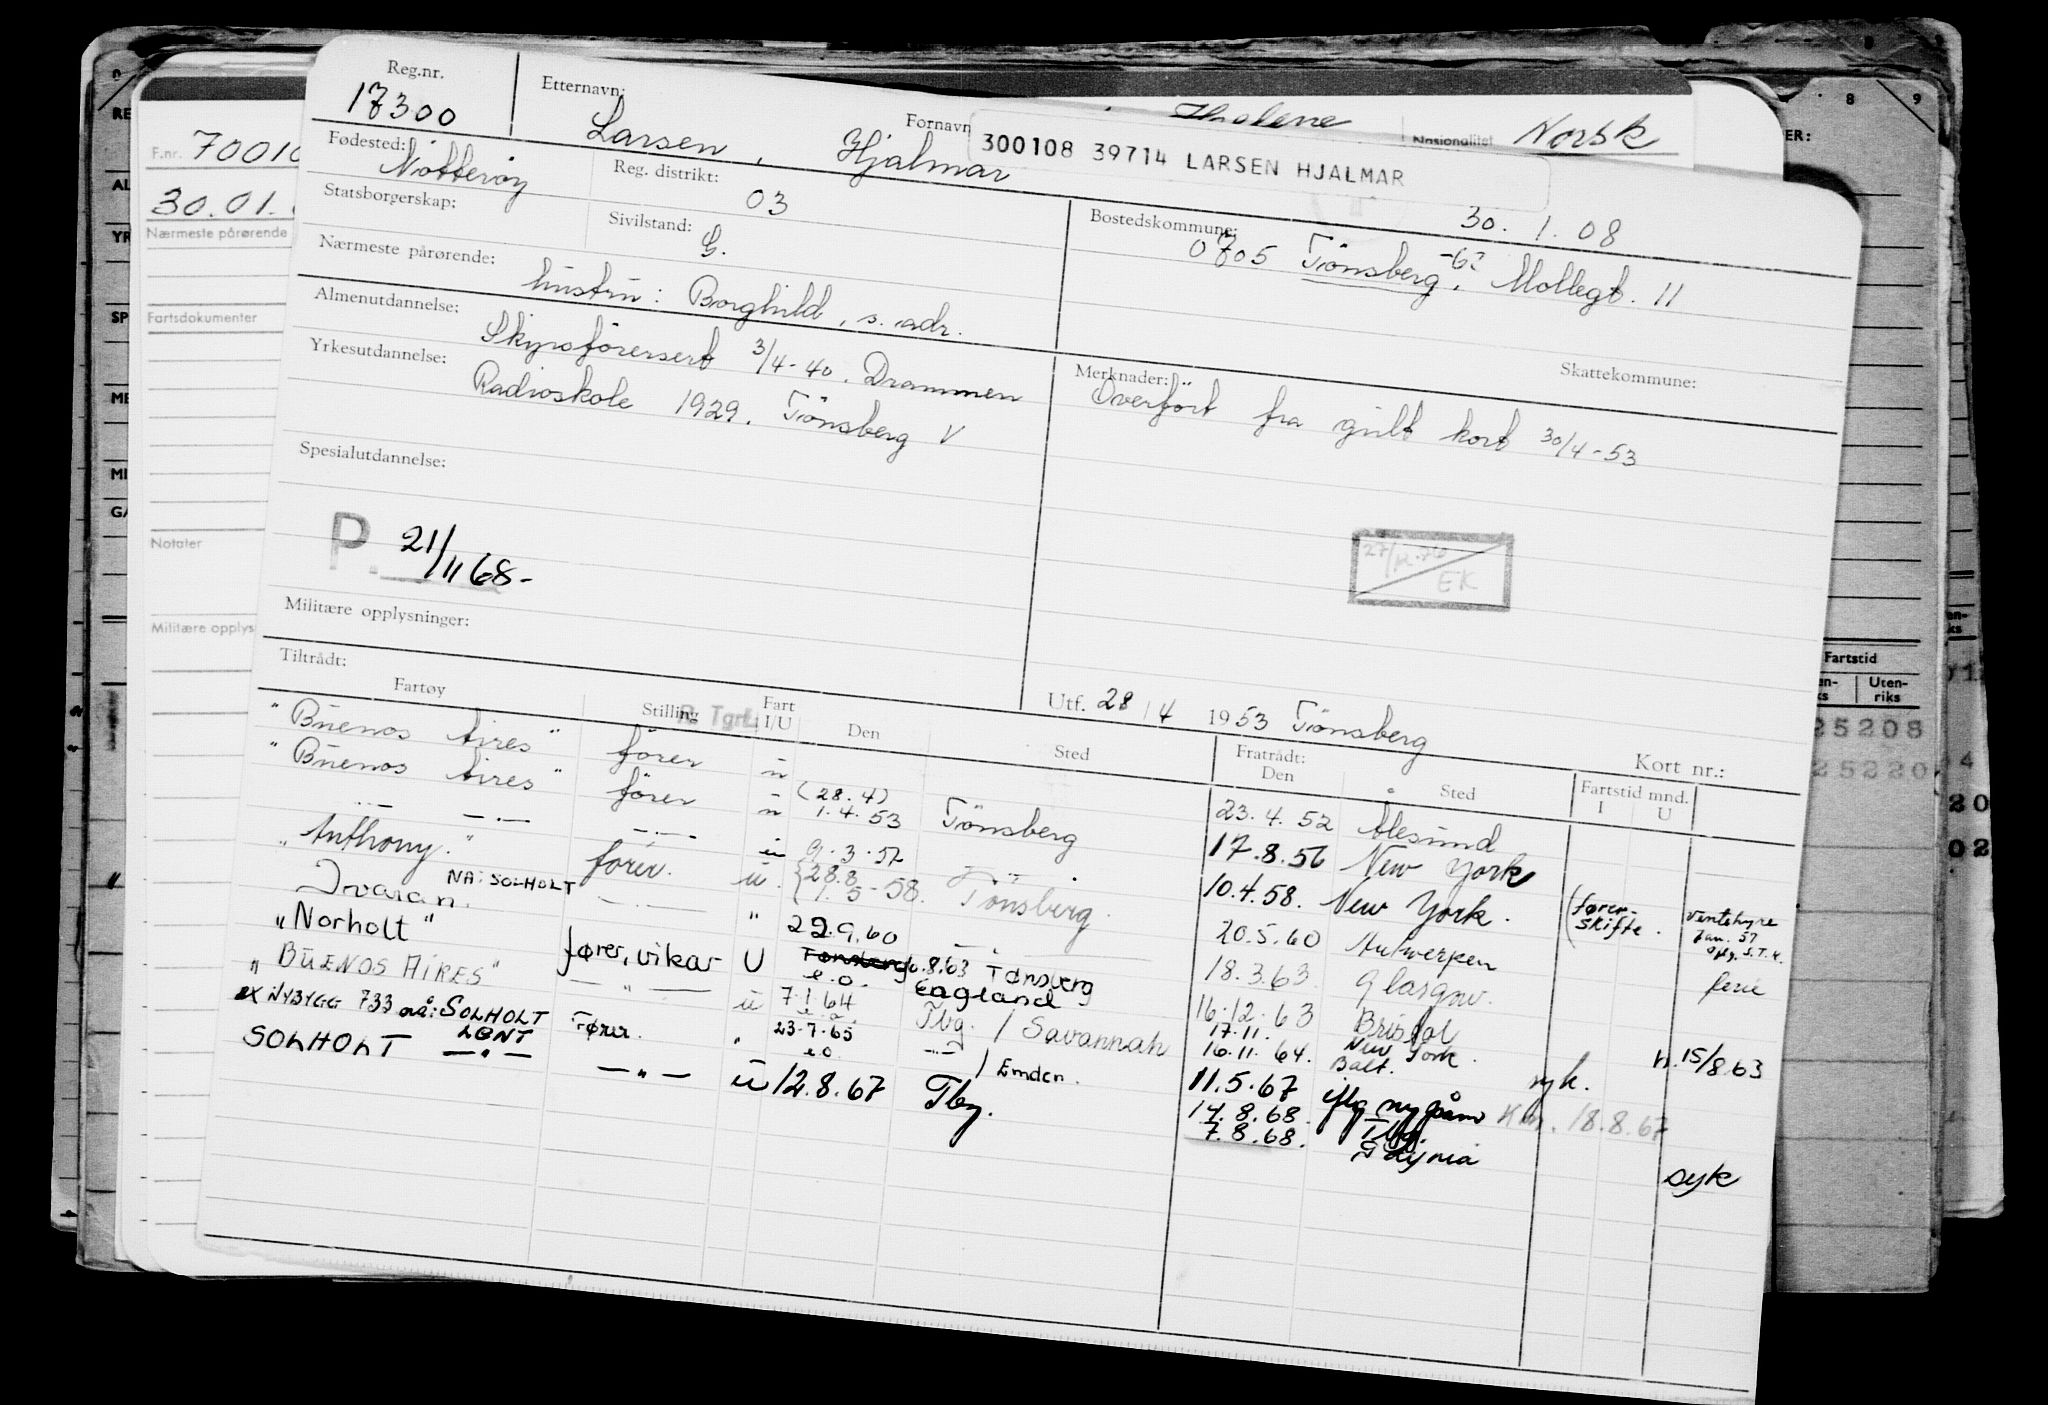 Reg.nr. 17300
Etternavn: Larsen, Fornavn Hjalmar
300108 39714 LARSEN HJALMAR
Nasjonalitet Norsk
30. 1. 08
Fødested: Nøtterøy
Reg. distrikt: 03
Statsborgerskap:
Sivilstand: G.
Bostedskommune: 0705 Tönsberg, Mollegt. 11
Nærmeste pårørende: hustru: Borghild, s. adr.
Skattekommune:
Almenutdannelse:
Skipsförersert 3/4-40. Drammen
Yrkesutdannelse: Radioskole 1929. Tönsberg V
Merknader: Överfört fra gult kort 30/4-53
Spesialutdannelse:
P. 21/11 68-
27/12.76 EK
Militære opplysninger:
Utf. 28/4 1953 Tönsberg
Kort nr.:
Tiltrådt:
Fartøy Stilling Fart I/U Den Sted Fratrådt: Den Sted Fartstid mnd. I U
R. Tgrf.
"Buenos Aires" förer u 23.4.52 Ålesund
"Buenos Aires" förer u (28.4) 1.4.53 Tönsberg 17.8.56 New York
— " — — " — u 9.3.57 — " — 10.4.58. New York. (fører-skifte. ventehyre Jan. 57
"Anthony." förer. u. {28.8 1.5-58. Tönsberg. 20.5.60 Antwerpen ferie
NÅ: SOLHOLT
" 22.9.60 18.3.63. Glasgow.
"Norholt" fører, vikar U .8.63 Tønsberg 16.12.63 Bristol h. 15/8.63
e.o. England
"BUENOS AIRES" — " — u 7.1.64 Tbg. / Savannah 17.11. New York.
16.11.64. Balt. syk.
ex NYBYGG 733 nå: SOLHOLT Fører. " 23.7.65 — " — / Emden. 11.5.67
e.o.
18.8.67
SOLHOLT — " — u 12.8.67 Tbg. 14.8.68. Tbg.
7.8.68. Gdynia syk
F.nr. 70010
30.01.
Nærmeste pårørende
Fartsdokumenter
Notater
Militære opplys
8 9
Fartstid
Uten-riks
25208
25220
20
02